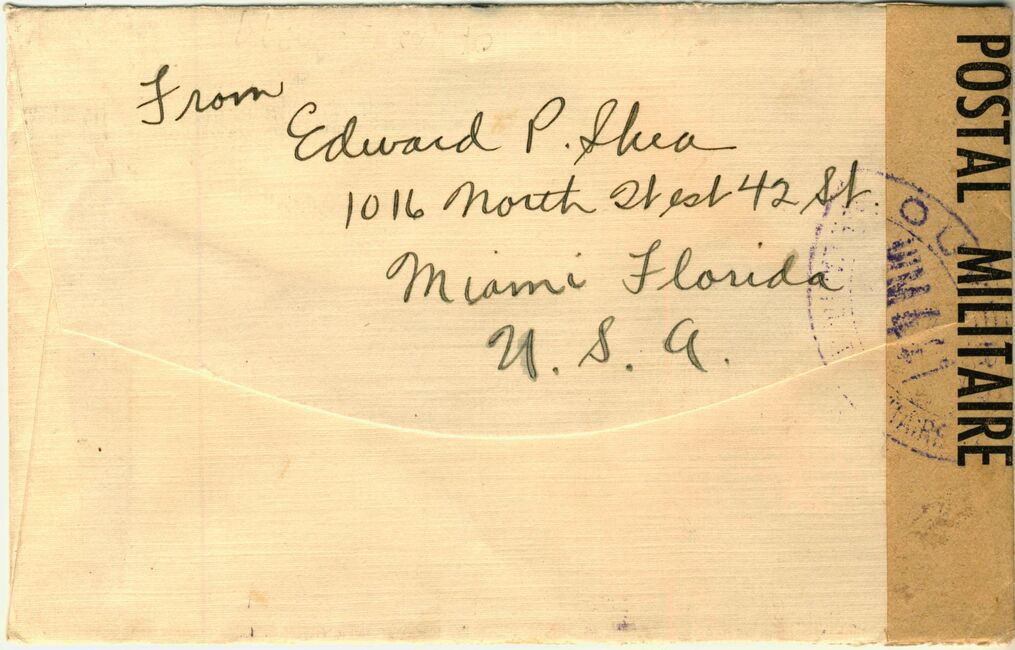 From
Edward P. Shea
1016 North West 42 St.
Miami Florida
U. S. A.
POSTAL MILITAIRE